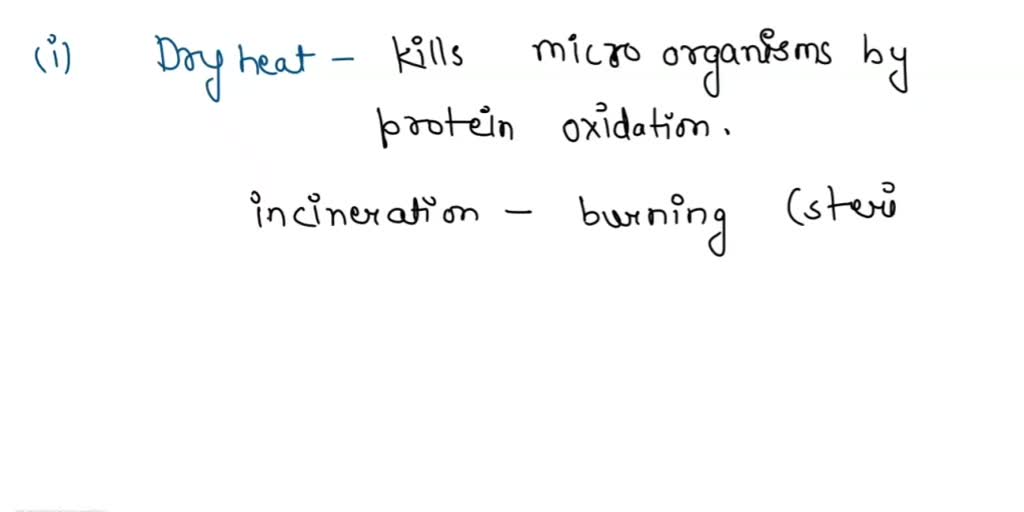 (i) Dry heat - kills micro organisms by
protein oxidation.
incineration - burning (steri